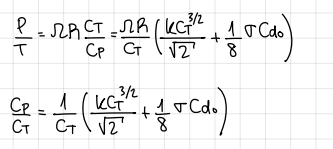 P/T = ΩR CT/CP = ΩR/CT (kCT^3/2/√2 + 1/8 σ Cd₀)
CP/CT = 1/CT (kCT^3/2/√2 + 1/8 σ Cd₀)